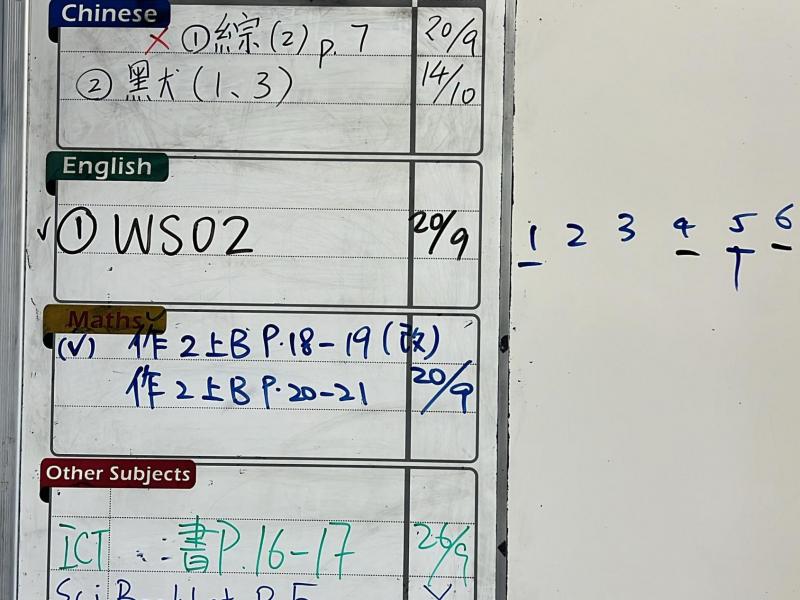 Chinese
× ① 綜(2) p.7 20/9
② 黑犬(1、3) 14/10
English
✓ ① WS02 20/9
1 2 3 4 5 6
Maths
(✓) 作2上B P.18-19(改)
作2上B P.20-21 20/9
Other Subjects
ICT 書P.16-17 26/9
Sci Booklet P.5